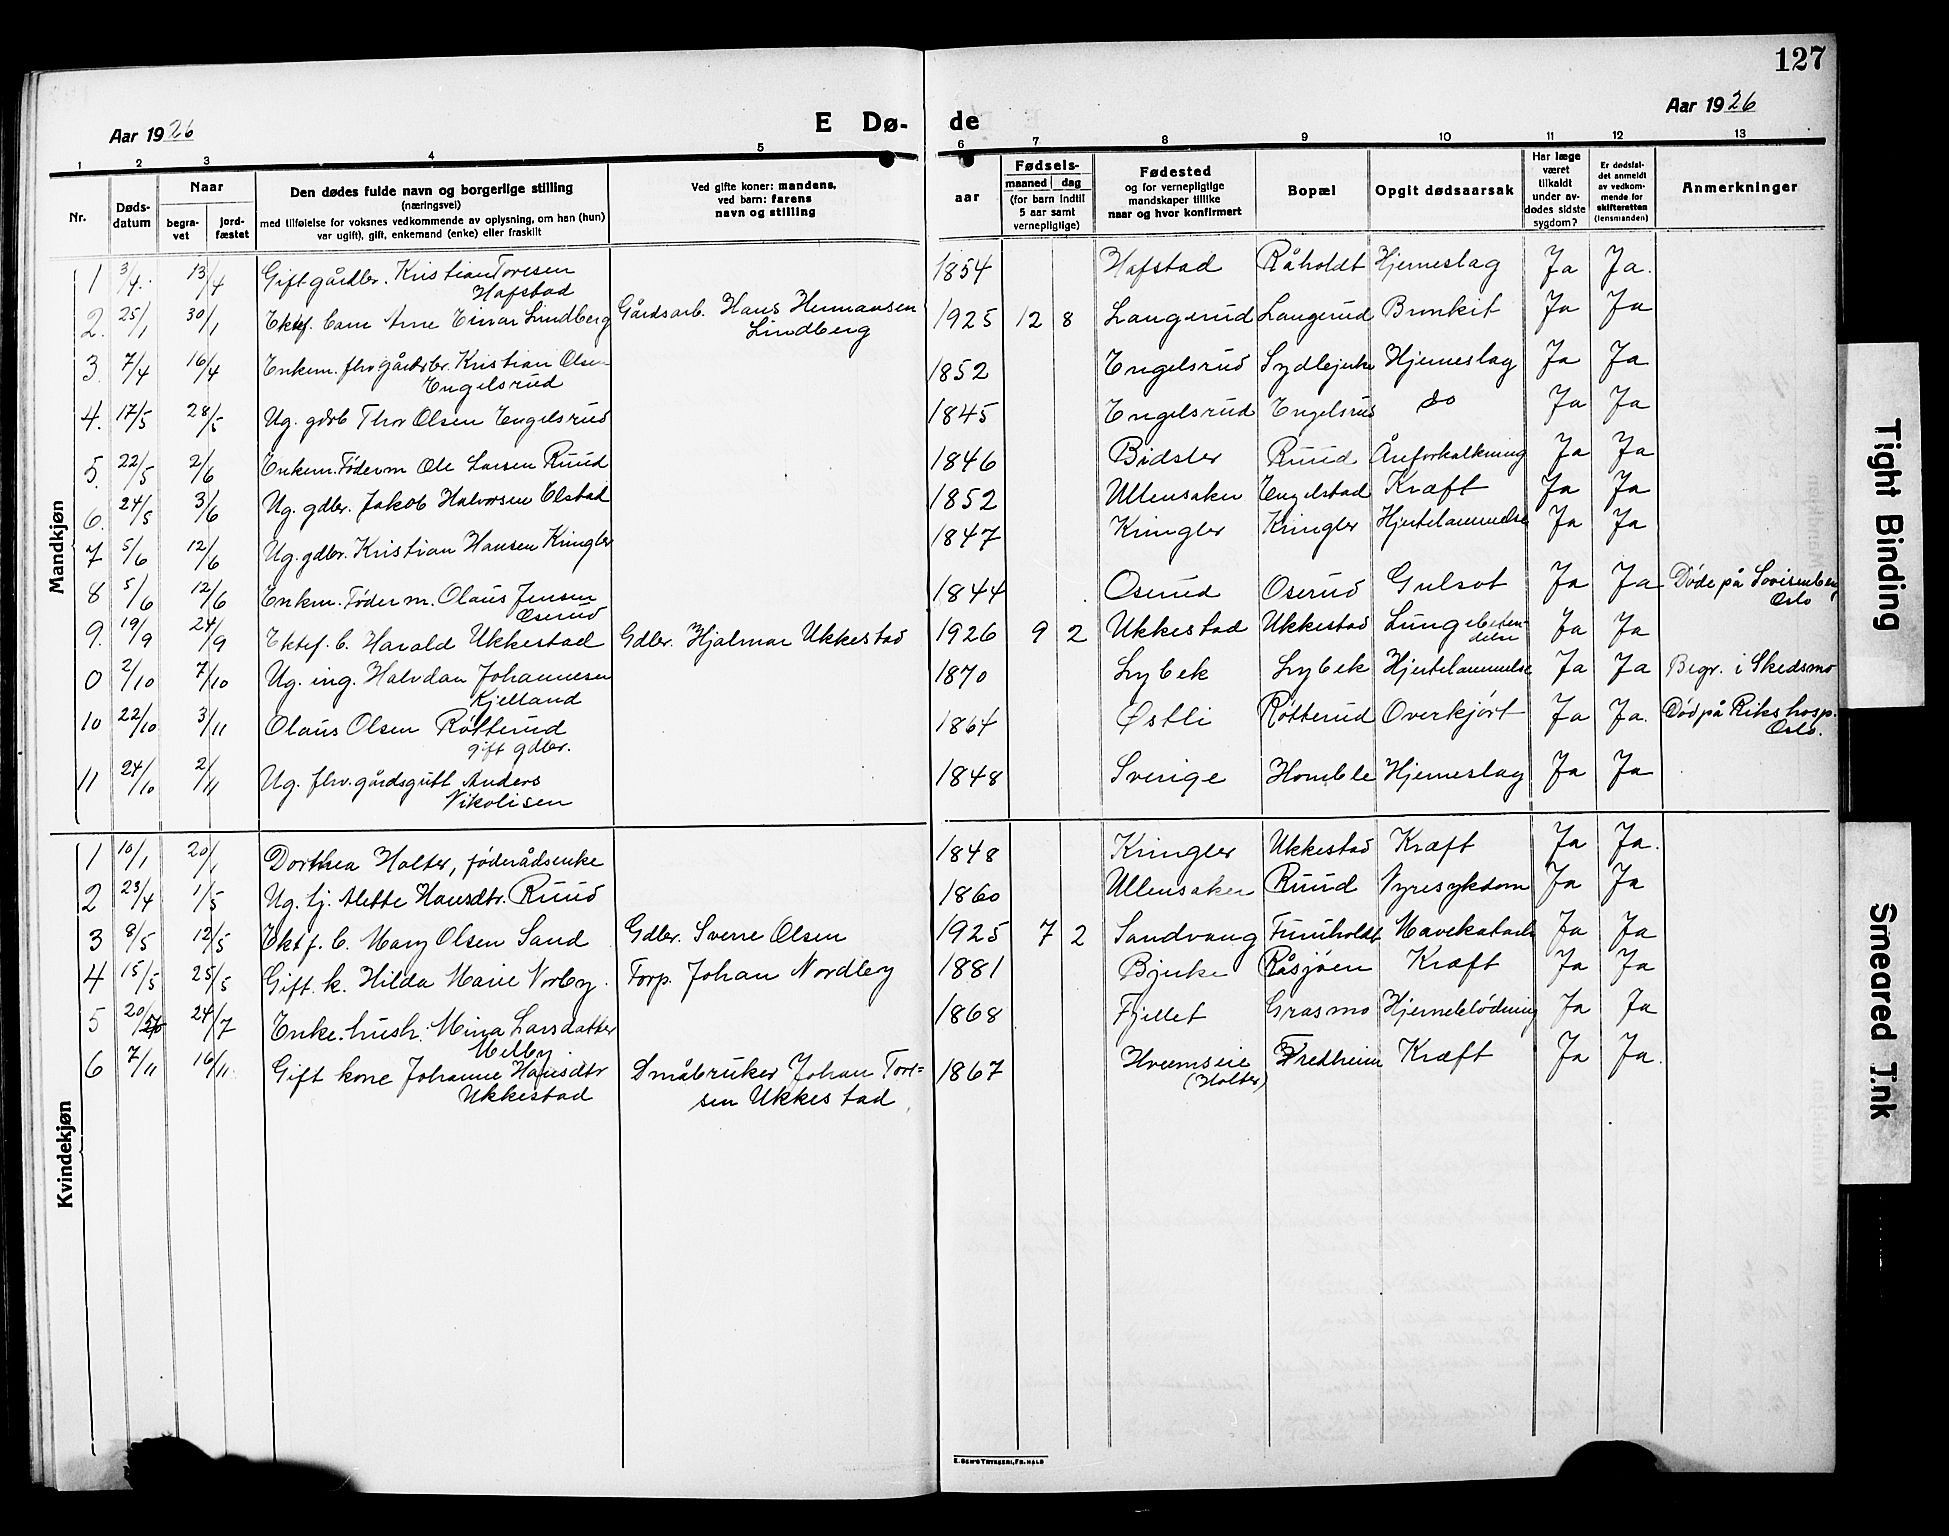 127
Aar 1926
E Dø-
de
Aar 1926
1 2 3 4 5 6 7 8 9 10 11 12 13
Nr.
Døds-
datum
Naar
begra-
vet
jord-
fæstet
Den dødes fulde navn og borgerlige stilling
(næringsvei)
med tilføielse for voksnes vedkommende av oplysning, om han (hun)
var ugift, gift, enkemand (enke) eller fraskilt
Ved gifte koner: mandens,
ved barn: farens
navn og stilling
aar
Fødsels-
maaned dag
(for barn indtil
5 aar samt
vernepligtige)
Fødested
og for vernepligtige
mandskaper tillike
naar og hvor konfirmert
Bopæl
Opgit dødsaarsak
Har læge
været
tilkaldt
under av-
dødes sidste
sygdom?
Er dødsfal-
det anmeldt
av vedkom-
mende for
skifteretten
(lensmanden)
Anmerkninger
Mandkjøn
1 3/4. 13/4 Gift gårdbr. Kristian Toresen 1854 Hafstad Råholdt Hjerneslag Ja Ja.
Hafstad
2. 25/1 30/1 Ektef. barn Arne Einar Lindberg Gårdsarb. Hans Hermansen 1925 12 8 Langerud Langerud Bronkit Ja Ja
Lindberg
3. 7/4 16/4 Enkem. fhv gårdbr. Kristian Olsen 1852 Engelsrud Hjerneslag Ja Ja
Engelsrud
4. 17/5 28/5 Ug. gdrb Thor Olsen Engelsrud 1845 Engelsrud Engelsrud do Ja Ja
5. 22/5 2/6 Enkem. Føderm Ole Larsen Ruud 1846 Bidsler Ruud Åreforkalkning Ja Ja
6. 24/5 3/6 Ug. gdbr. Jakob Halvorsen Elstad 1852 Ullensaker Engelstad Kræft Ja Ja
7 5/6 12/6 Ug. gdbr. Kristian Hansen Kringler 1847 Kringler Kringler Hjertelammelse Ja Ja
8 5/6 12/6 Enkm. Føderm. Olaus Jensen 1844 Oserud Oserud Gulsot Ja Ja Døde på Lovisenberg
Oserud Oslo
9. 19/9 24/9 Ektef. b. Harald Ukkestad Gdbr. Hjalmar Ukkestad 1926 9 2 Ukkestad Ukkestad Lungebeten-
delse Ja Ja
0 2/10 7/10 Ug. ing. Halvdan Johannesen 1870 Lybek Lybek Hjertelammelse Ja Ja Begr. i Skedsmo
Kjelland
10 22/10 3/11 Olaus Olsen Røtterud 1864 Østli Røtterud Overkjørt Ja Ja. Død på Rikshosp.
gift gdbr. Oslo.
11 24/10 2/11 Ug. fhv. gårdsgutt Anders 1848 Sverige Homble Hjerneslag Ja Ja
Nikolisen
Kvindekjøn
1 10/1 20/1 Dorthea Holter, føderådsenke 1848 Kringler Ukkestad Kræft Ja Ja.
2 23/4 1/5 Ug. tj. Alette Hansdtr. Ruud 1860 Ullensaker Ruud Nyresykdom Ja Ja
3 8/5 12/5 Ektf. b. Mary Olsen Sand Gdbr. Sverre Olsen 1925 7 2 Sandvang Furuholdt Mavekatarh Ja Ja
4 15/5 25/5 Gift. k. Hilda Marie Norby. Torp. Johan Nordby 1881 Bjerke Råsjøen Kræft Ja Ja
5 24/7 Enke. hush. Mina Larsdatter 1868 Fjellet Grasmo Hjerneblødning Ja Ja
Melby
6 7/11 16/11 Gift kone Johanne Hansdtr Småbruker Johan Tore= 1867 Hvemseie Fredheim Kræft Ja Ja.
Ukkestad sen Ukkestad (Holter)
E. SEM'S TRYKKERI, FR.HALD
Tight Binding
Smeared Ink